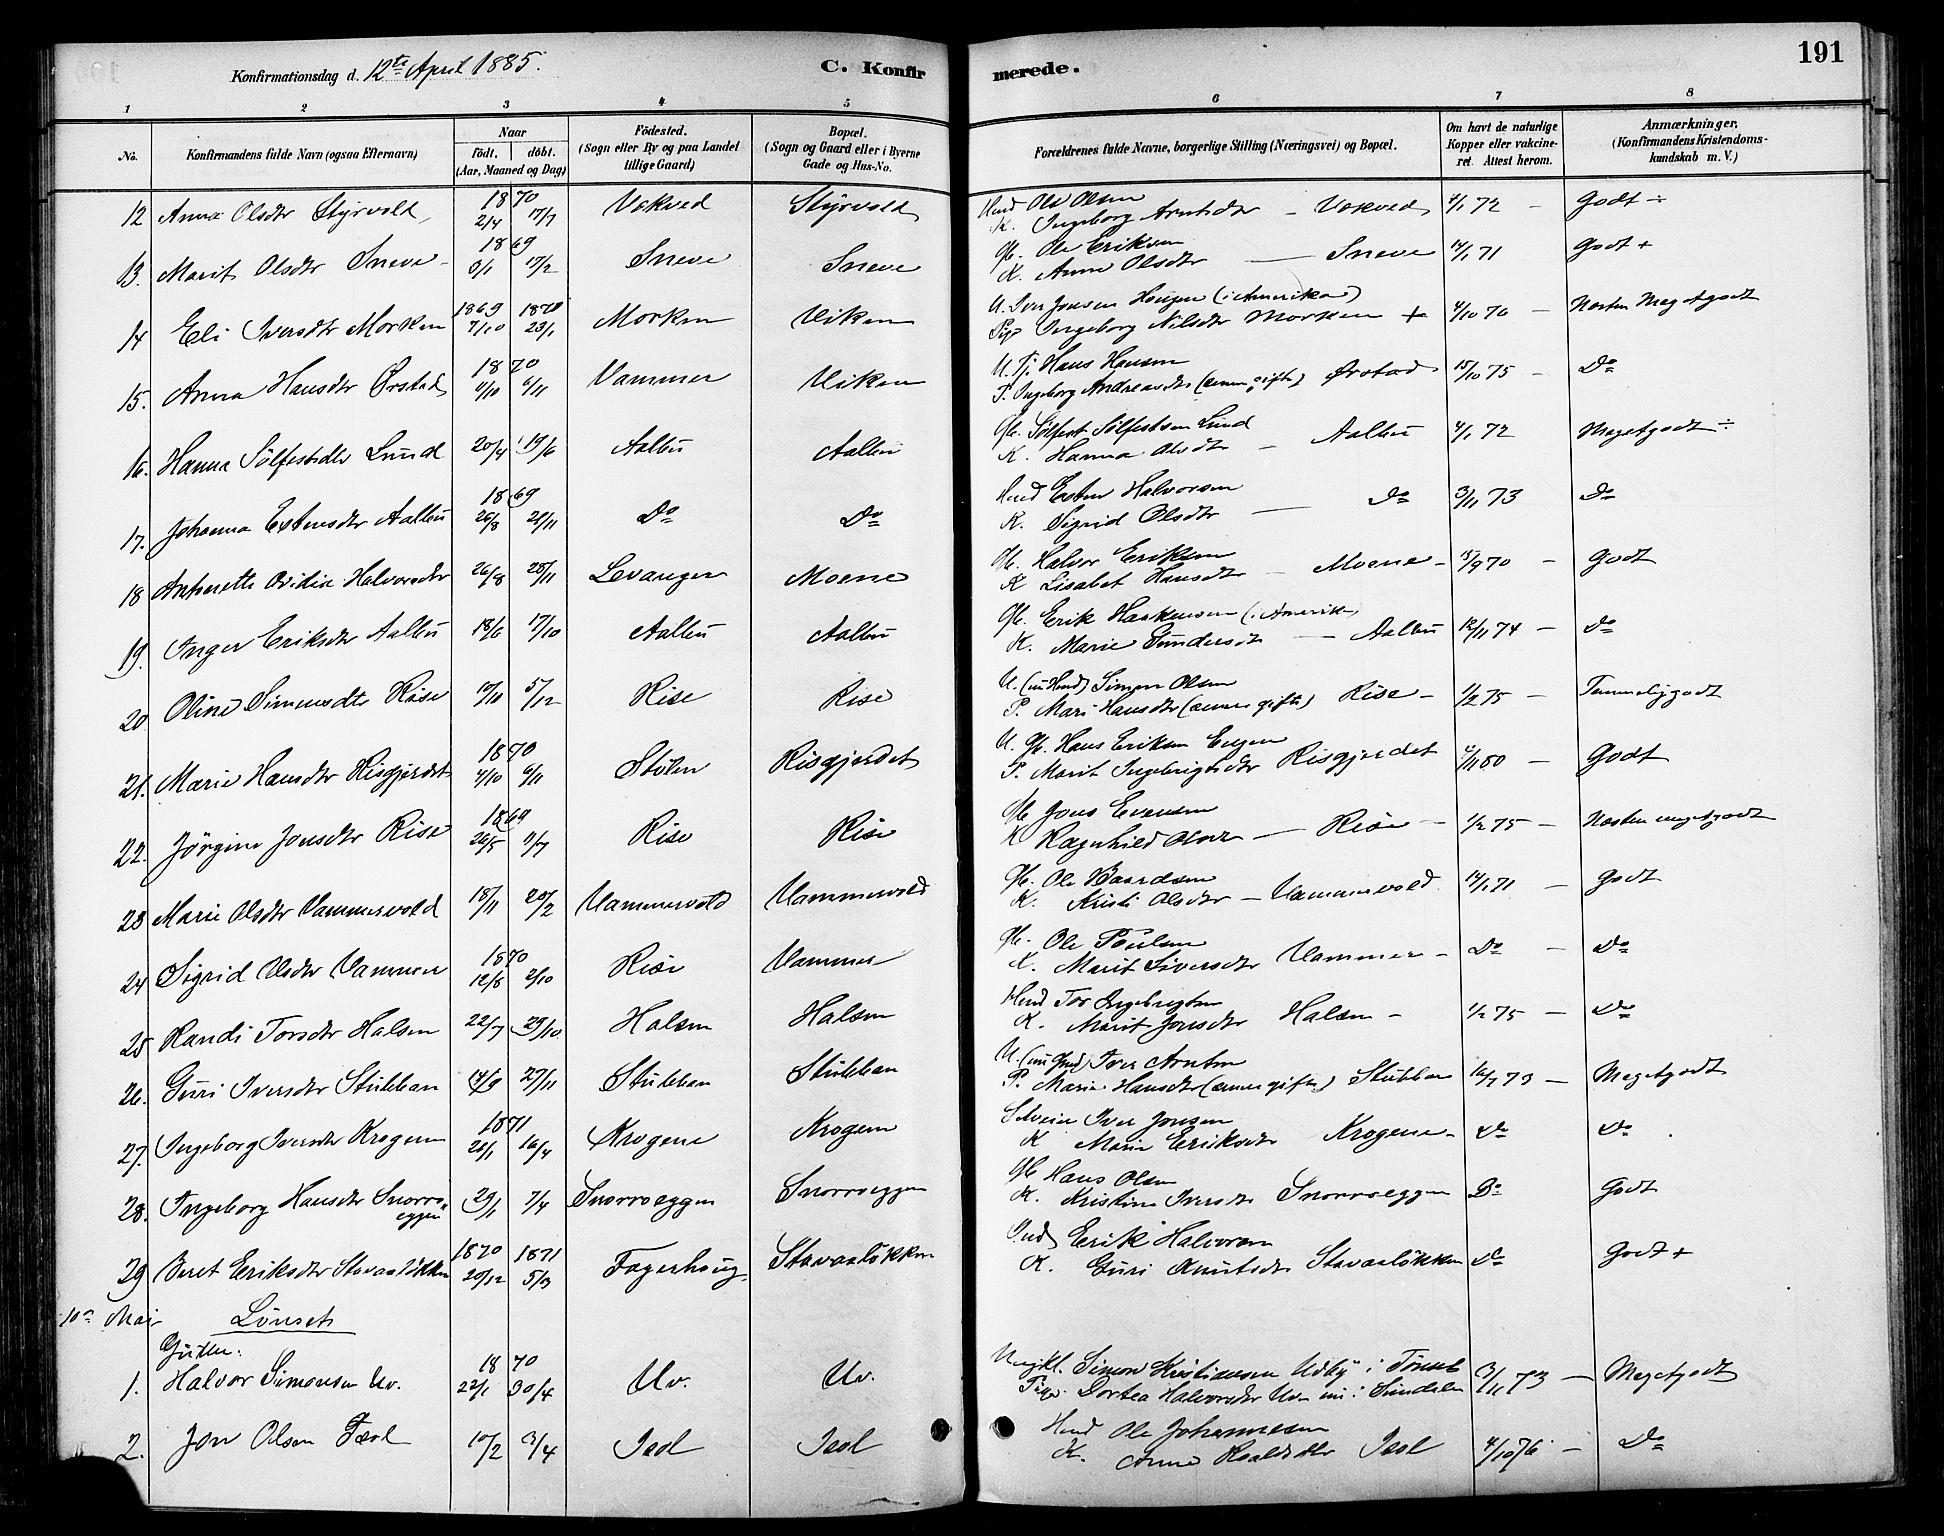 Konfirmationsdag d. 12te April 1885. C. Konfirmerede. 191
1 2 3 4 5 6 7 8
No. Konfirmandens fulde Navn (ogsaa Efternavn) Naar födt. döbt. (Aar, Maaned og Dag) Födested. (Sogn eller By og paa Landet tillige Gaard) Bopæl. (Sogn og Gaard eller i Byerne Gade og Hus-No. Forældrenes fulde Navne, borgerlige Stilling (Næringsvei) og Bopæl. Om havt de naturlige Kopper eller vakcineret. Attest herom. Anmærkninger, (Konfirmandens Kristendomskundskab m. V.)
1870
12 Anna Olsdtr Styrvold 2/4 17/7 Vekved Styrvold Ole Olsen K. Ingeborg Arntsdtr - Vekved 4/1 72 - Godt ÷
1869
13. Marit Olsdtr Sneve 17/2 Sneve Sneve Gb. Ole Eriksen K. Anne Olsdtr - Sneve 14/1 71 Godt +
1869 1870
14 Eli Iversdtr Morken 7/10 23/1 Morken Viken U. Iver Jonsen Haugen (i Amerika) Pige Ingeborg Nilsdtr Morken + 4/10 70 - Næsten Megetgodt
1870
15. Anna Hansdtr Ørstad 4/10 6/11 Vammer Viken U. Tj. Hans Hansen P. Ingeborg Andreasdtr Ørstad 15/10 75 - Do
16. Hanna Sölfestsdtr Lund 20/4 19/6 Aalbu Aalbu Gb. Sölfest Sölfestsen Lund K. Hanna Olsdtr - Aalbu 4/1 72 Megetgodt ÷
1869
17. Johanna Estensdtr Aalbu 26/8 21/11 Do Do Esten Halvorsen K. Sigrid Olsdtr - Do 3/11 73 Do
18 Antonette Ovidia Halvorsdtr 26/8 28/11 Levanger Moene Gb. Halvor Eriksen K Lisabet Hansdtr - Moene - 15/9 70 - Godt
19. Inger Eriksdtr Aalbu 18/6 17/10 Aalbu Aalbu Gb. Erik Haakensen (i Amerika) K. Marie Gundersdtr - Aalbu 12/11 74 - Do
20 Oline Simensdtr Rise 10/10 5/12 Rise Rise U. Simen Olsen P. Mari Hansdtr Rise - 1/2 75 - Temmeliggodt
1870
21. Marie Hansdtr Risgjerdet 4/10 6/11 Stölen Risgjerdet U. Gb. Hans Eriksen Engen P. Marit Ingebrigtsdtr Risgjerdet 4/11 80 - Godt
1869
22. Jörgine Jonsdtr Rise 26/5 11/7 Rise Rise Gb Jons Evensen K Ragnhild Olsdtr - Rise - 1/2 75 - Næsten megetgodt
23 Marie Olsdtr Vammervold 18/11 20/2 Vammervold Vammervold Gb. Ole Baardsen K. Kristi Olsdtr - Vammervold 14/1 71 - Godt
1870
24 Sigrid Olsdtr Vammer 12/8 2/10 Rise Vammer Gb. Ole Poulsen K. Marit Siversdtr Vammer - Do - Do
25 Randi Torsdtr Halsen 22/7 29/10 Halsen Halsen Tor Ingebrigtsen K. Marit Jonsdtr Halsen - 1/2 75 - Do
26. Guri Iversdtr Stubban 14/9 27/11 Stubban Stubban U. Iver Arntsen P. Marie Hansdtr Stubban 16/7 73 - Megetgodt
1871
27. Ingeborg Iversdtr Krogene 21/1 16/4 Krogene Krogene Selveier Iver Jonsen K Marie Eriksdtr Krogene - Do Do
28. Ingeborg Hansdtr Snorroeggen 29/1 7/4 Snorroeggen Snorroeggen Gb Hans Olsen K. Kristine Iversdtr Snorroeggen Do Godt
1870 1871
29 Beret Eriksdtr Stavaalökken 29/12 5/3 Fagerhaug Stavaalökken Ind Erik Halvorsen K. Guri Knutsdtr Stavaalökken Do Godt +
10de Mai Lönset
Gutter:
1870
1. Halvor Simonsen Uv. 22/1 30/4 Uv. Uv. Ungkl. Simon Kristiansen Udby i Tönset Pige. Dortea Halvorsdtr Uv 3/11 73 - Megetgodt
2. Jon Olsen Isol 10/2 3/4 Isol Isol Ole Johannesen K. Anne Roaldsdtr Isol 4/10 76 - Do